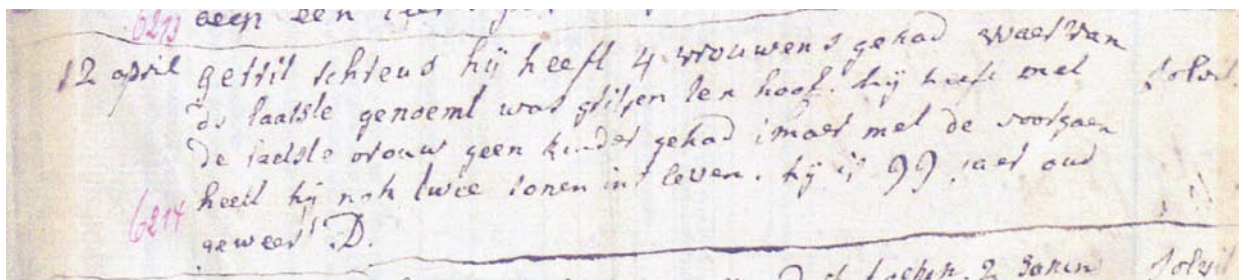 6213 geen een
12 april gerrit schreus hij heeft 4 vrouwens gehad waervan solvit
de laatste genoemt was gritjen ten hoof. hij heeft met
de laetste vrouw geen kinder gehad maer met de voorgaen
heeft hij noh twie sonen int leven. hij is 99 jaer oud
6214 geweest D.
2 sonen solvit